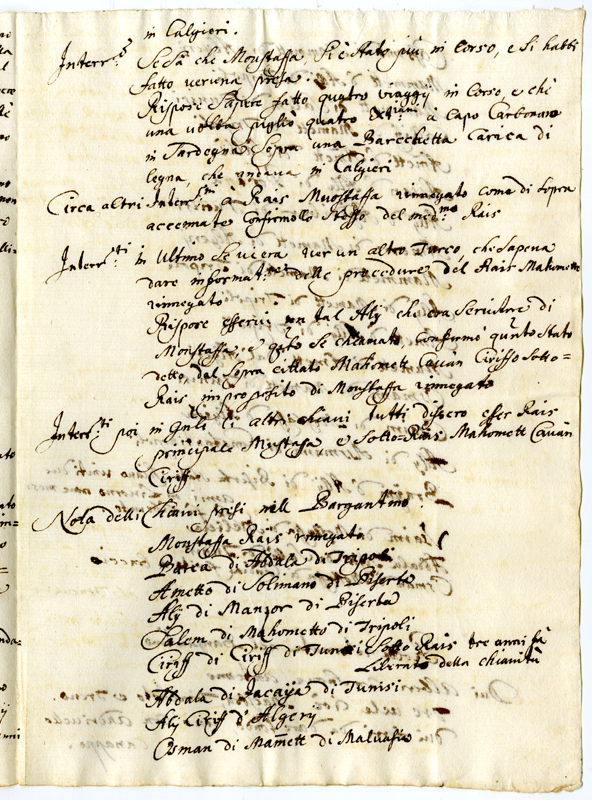 in Calgieri.
Interr.º Se sà che Moustaffa si è stato più in Corso, e si habbi
fatto veruna presa.
Rispose sapere fatto quatro viaggij in Corso, e che
una volta pigliò quatro à Capo Carbonaro
in Sardegna sopra una Barchetta Carica di
legna, che andava in Calgieri
Circa altri Interr.ti à Rais Muostaffa rinnegato come di sopra
accennato confirmò lo stesso del med.mo Rais
Interr.ti in Ultimo se vi era ver un altro Turco che sapeva
dare informat.ne delle procedure del Rais Mahomette
rinnegato
Rispose esservi un tal Aly che era Servitore di
Moustaffa, e q̃to se chiamato, Confirmò q̃nto stato
detto dal sopra cittato Mahomett Cauàn Ciriffo sotto=
Rais in proposito di Moustaffa rinnegato
Interr.ti poi in gñli li altri schiavi tutti dissero esser Rais
principale Mustafa e Sotto-Rais Mahomett Cauàn
Ciriff
Nota delli schiavi presi nell Bargantino.
Moustaffa Rais rinegato
Barca di Abdala di Tripoli
Ametto di Solimano di Biserta
Aly di Manzor di Biserta
Salem di Mahometto di Tripoli
Ciriff di Ciriff di Tunisi Sotto Rais tre anni fà
Liberato della schiavitù
Abdala di Jacaija di Tunisi
Aly Ciriff d'Algery
Osman di Mam̃ett di Malvasia